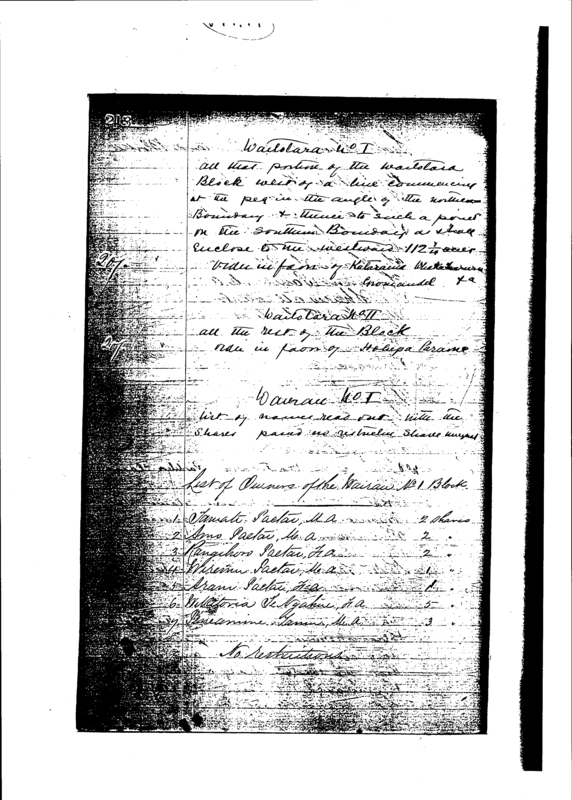 213
Waitotara No I
all that portion of the Waitotara
Block west of a line commencing
at the peg in the angle of the northern
Boundary & thence to such a point
on the Southern Boundary as shall
enclose to the westward 112 acres
Order in favor of Katarina
Waitotara No II
all the rest of the Block
Order in favor of Hohepa
Wairau No I
list of names read out with the
Shares no restriction
List of Owners of the Wairau No 1 Block.
1 Tamati Paetai, M.A. 2 shares
2 Paetai, M.A. 2 "
3 Rangikoro Paetai, F.A. 2 "
4 Wiremu Paetai, M.A. 1 "
Arani Paetai, F.A. 1 "
6 Wikitoria Te Ngahue, F.A. 5 "
7 M.A. 3 "
No restrictions